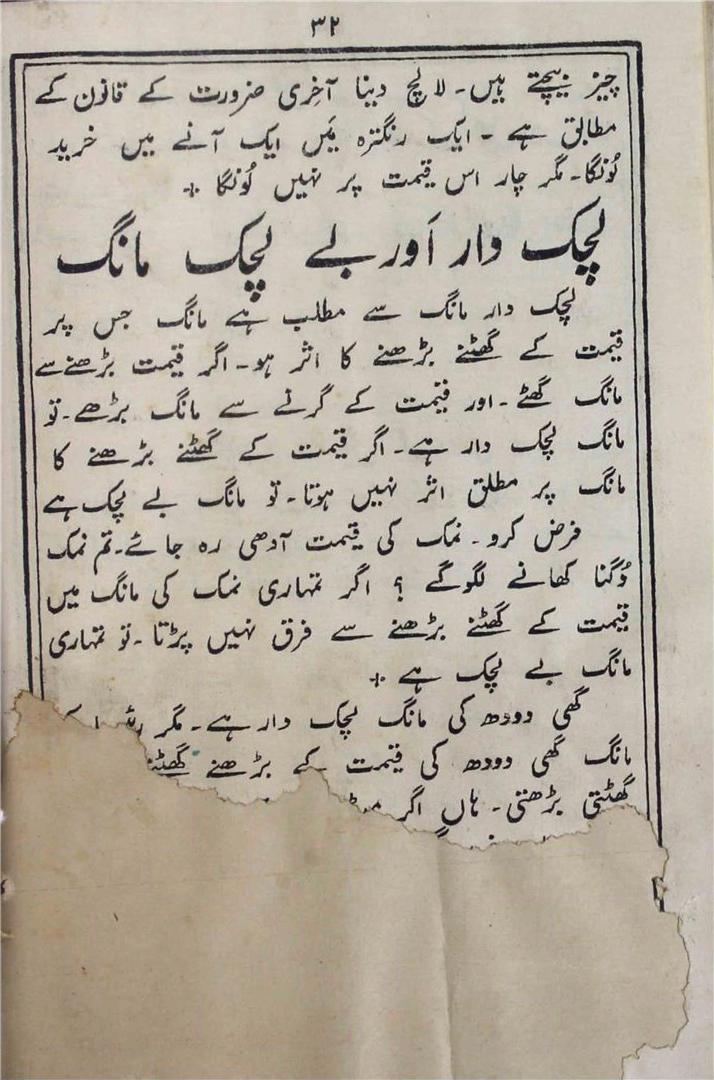 ۳۲
چیز بیچتے ہیں۔ لالچ دینا آخِری ضرورت کے قانون کے
مطابق ہے ۔ ایک رنگترہ مَیں ایک آنے میں خرید
لُونگا۔ مگر چار اس قیمت پر نہیں لُونگا +
لچک دار اَور بے لچک مانگ
لچک دار مانگ سے مطلب ہے مانگ جس پر
قیمت کے گھٹنے بڑھنے کا اثر ہو۔ اگر قیمت بڑھنے سے
مانگ گھٹے ۔ اور قیمت کے گرنے سے مانگ بڑھے ۔ تو
مانگ لچک دار ہے۔ اگر قیمت کے گھٹنے بڑھنے کا
مانگ پر مطلق اثر نہیں ہوتا۔ تو مانگ بے لچک ہے
فرض کرو ۔ نمک کی قیمت آدھی رہ جائے۔ تم نمک
دُگنا کھانے لگوگے ؟ اگر تمہاری نمک کی مانگ میں
قیمت کے گھٹنے بڑھنے سے فرق نہیں پڑتا ۔ تو تمہاری
مانگ بے لچک ہے +
گھی دودھ کی مانگ لچک دار ہے۔ مگر
مانگ گھی دودھ کی قیمت کے بڑھنے گھٹنے
گھٹتی بڑھتی۔ ہاں اگر